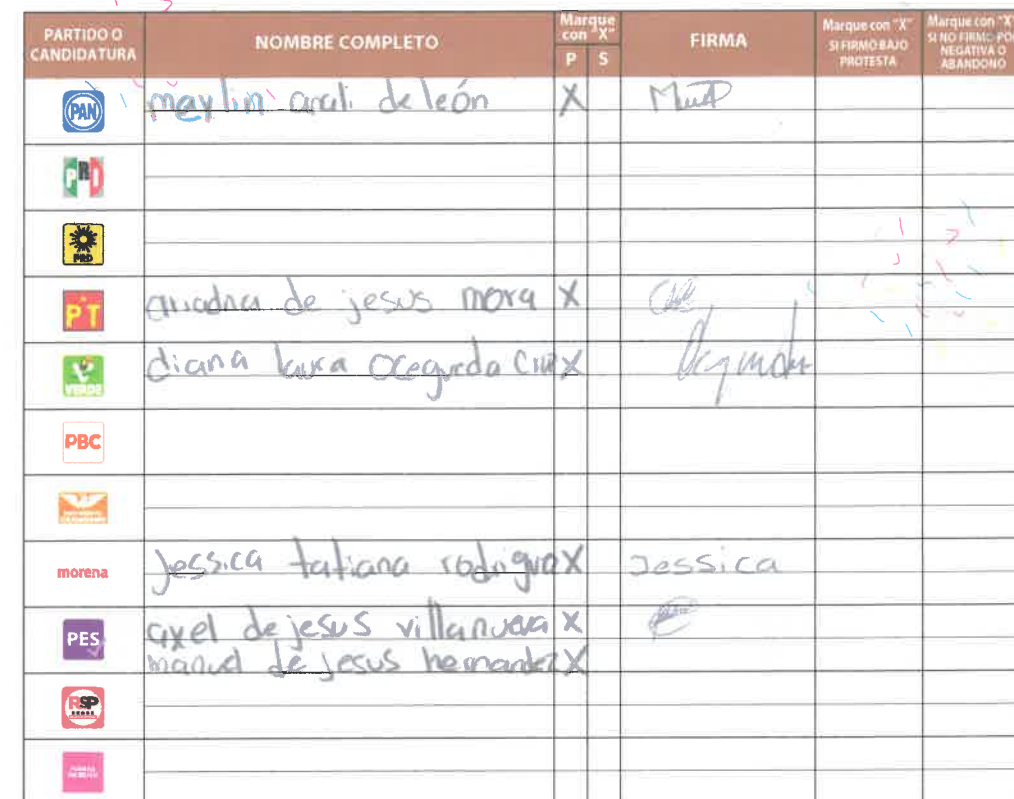 PARTIDO O CANDIDATURA NOMBRE COMPLETO Marque con "X" P S FIRMA Marque con "X" SI FIRMO BAJO PROTESTA Marque con "X" SI NO FIRMO POR NEGATIVA O ABANDONO
PAN maylin arali de león X
PRI
PRD
PT ariadna de jesus mora X
VERDE diana laura Ocegueda Cruz X
PBC
morena Jessica tatiana rodrigu X Jessica
PES axel de jesus villanueva X
manuel de jesus hernandez X
RSP